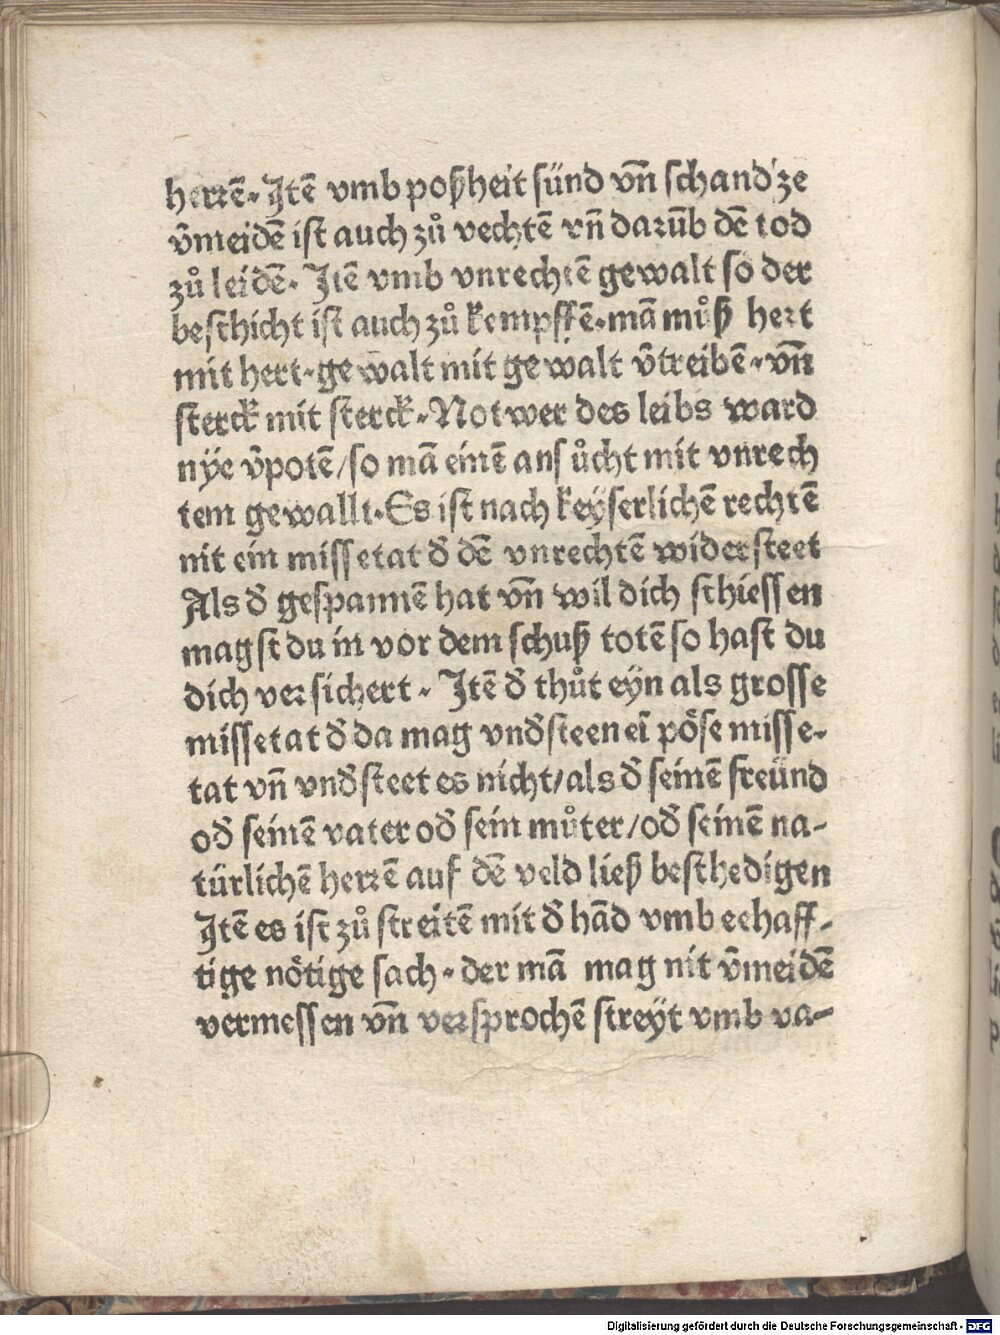 herꝛē. Jtē vmb poßheit sünd vñ schand' ze
v̄meidē ist auch zů vechtē vñ darūb dē tod
zů leidē. Jtē vmb vnrechtē gewalt so der
beschicht ist auch zů kempffē. mā můß hert
mit hert. gewalt mit gewalt v̄treibē. vñ
sterck mit sterck. Notwer des leibs ward
nye v̄potē/ so mā einē ansůcht mit vnrech
tem gewallt. Es ist nach keyserlichē rechtē
nit ein missetat đ dē vnrechtē widersteet
Als đ gespannē hat vñ wil dich schiessen
magst du in vor dem schuß totē so hast du
dich versichert. Jtē đ thůt eyn als grosse
missetat đ da mag vnđsteen eī pöse misse-
tat vñ vnđsteet es nicht/ als đ seinē freünd
ođ seinē vater ođ sein můter/ ođ seinē na-
türlichē herꝛē auf dē veld ließ beschedigen
Jtē es ist zů streitē mit đ hād vmb eehaff-
tige nötige sach. der mā mag nit v̄meidē
vermessen vñ versprochē streyt vmb va-
Digitalisierung gefördert durch die Deutsche Forschungsgemeinschaft - DFG